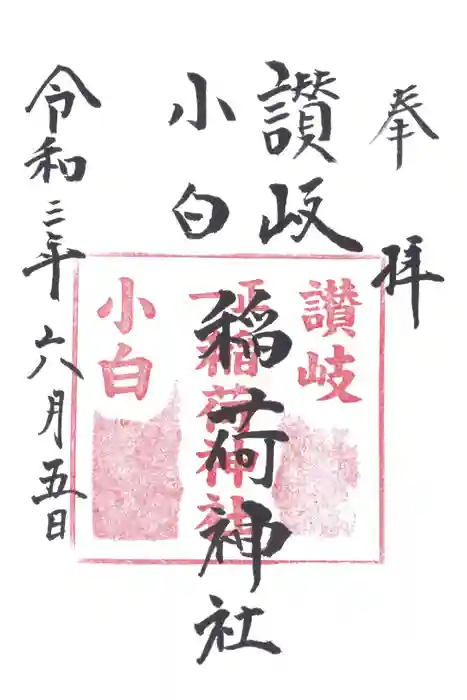 奉拝
讃岐
小白
稲荷神社
令和三年六月五日
讃岐
稲荷神社
小白